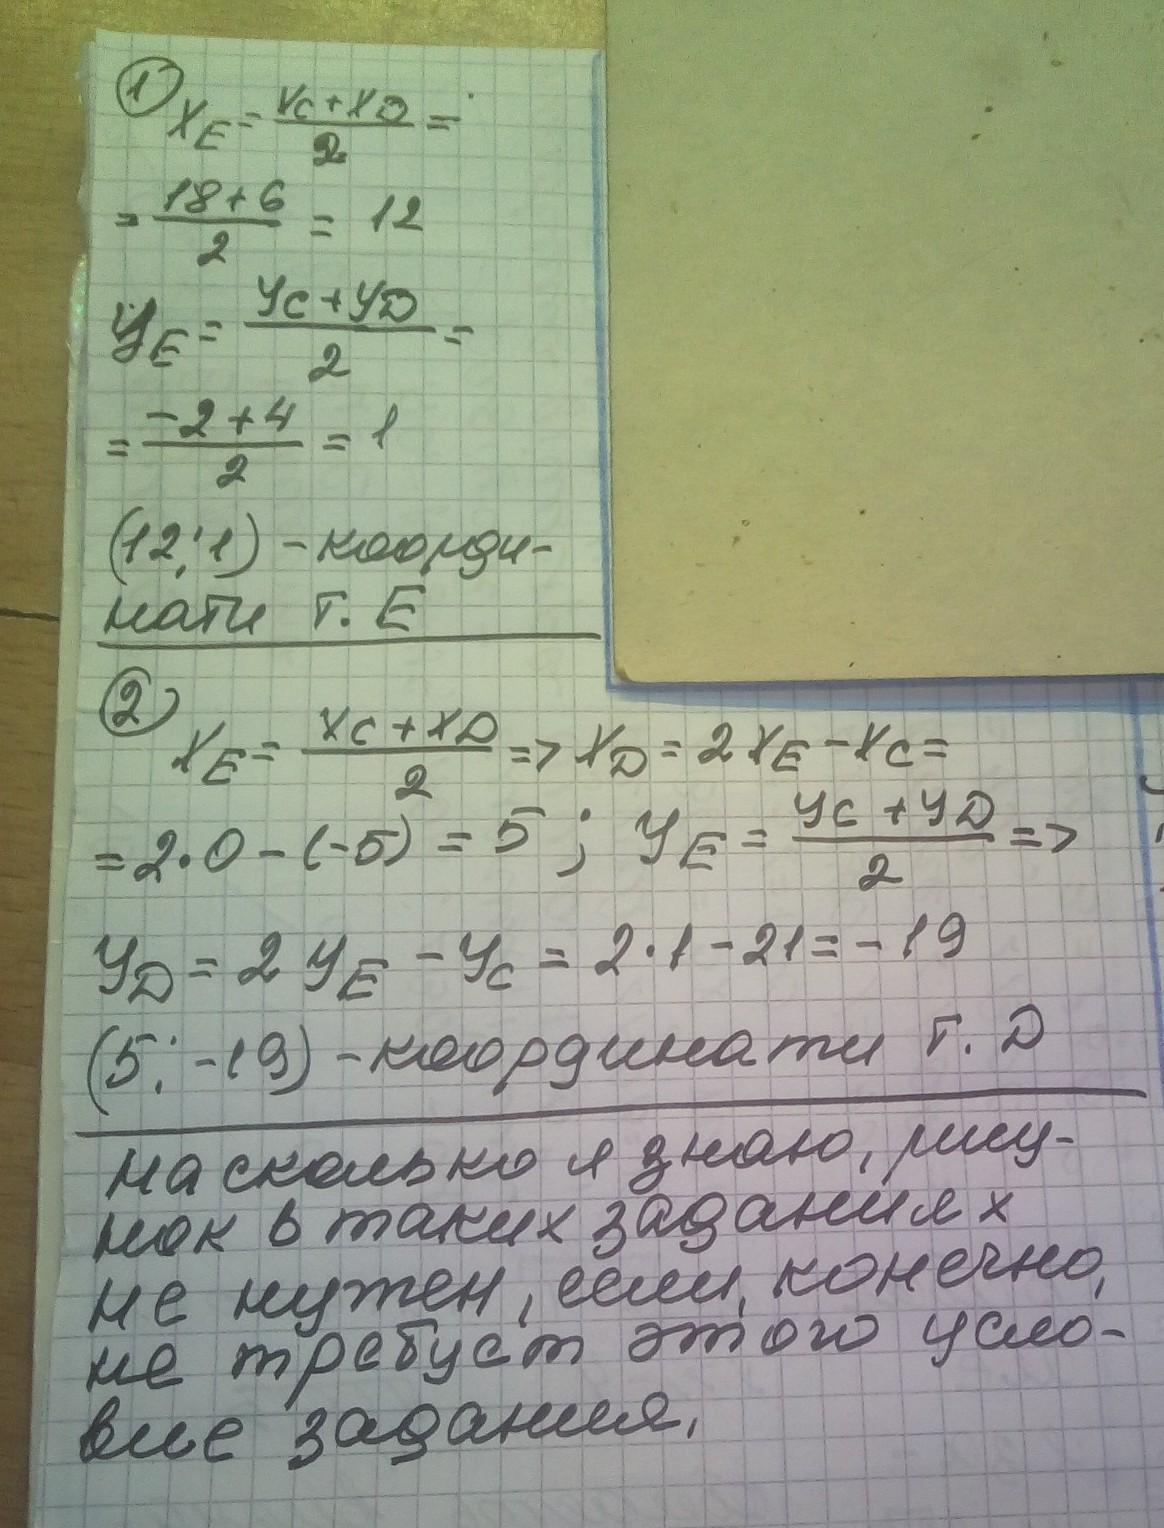 1) X_E = (X_C + X_D)/2 =
= (18 + 6)/2 = 12
У_E = (У_C + У_D)/2 =
= (-2 + 4)/2 = 1
(12; 1) - коорди-
нати т. E
2) X_E = (X_C + X_D)/2 => X_D = 2X_E - X_C =
= 2·0 - (-5) = 5; У_E = (У_C + У_D)/2 =>
У_D = 2У_E - У_C = 2·1 - 21 = -19
(5; -19) - координати т. D
Насколько я знаю, рису-
нок в таких заданиях
не нужен, если, конечно,
не требует этого усло-
вие задания.